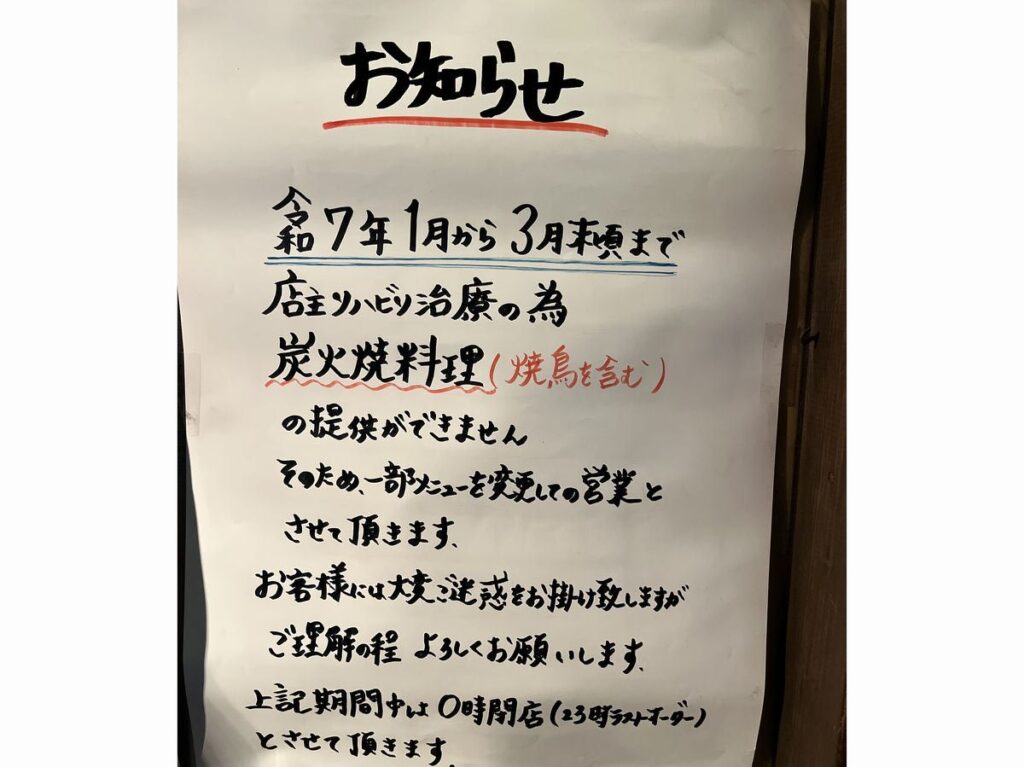 お知らせ
令和7年1月から3月末頃まで
店主リハビリ治療の為
炭火焼料理(焼鳥を含む)
の提供ができません
そのため、一部メニューを変更しての営業と
させて頂きます、
お客様には大変ご迷惑をお掛け致しますが
ご理解の程 よろしくお願いします、
上記期間中は0時閉店(23時ラストオーダー)
とさせて頂きます、